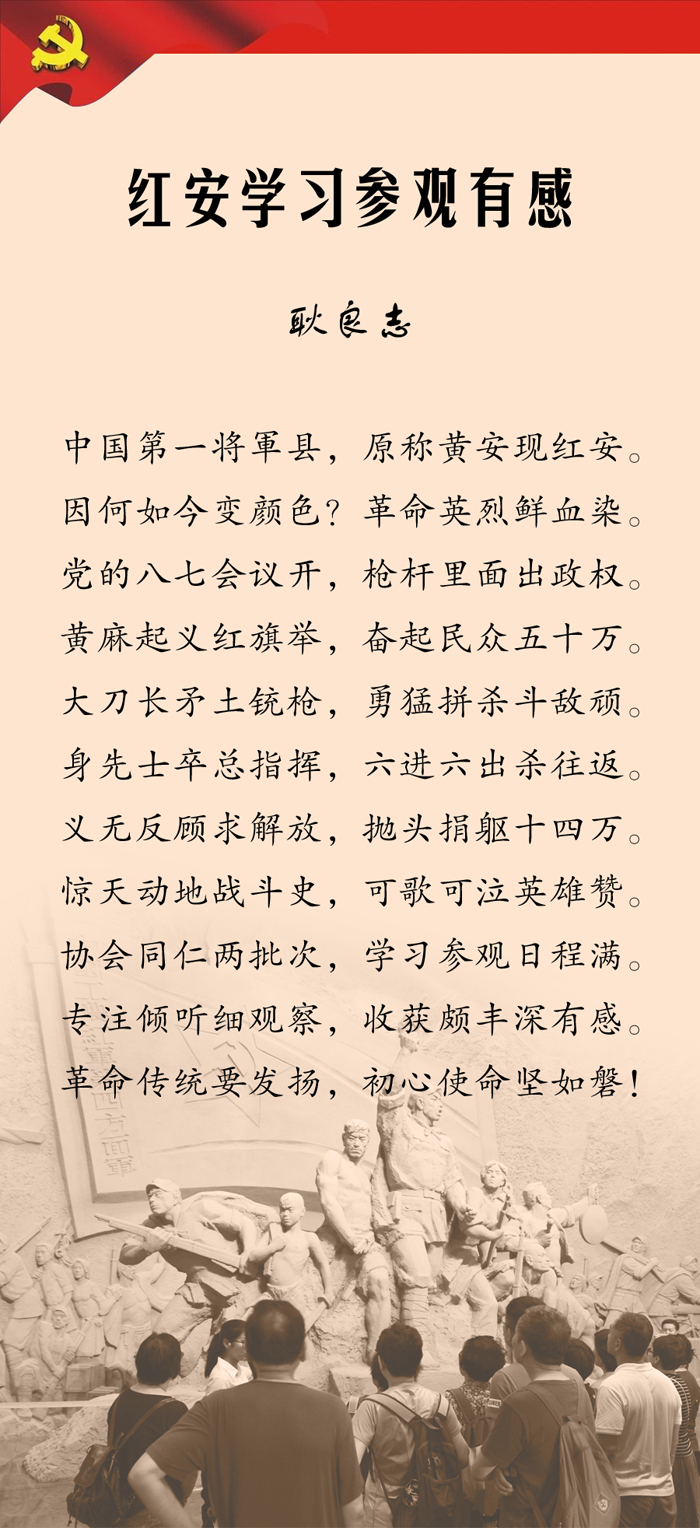 红安学习参观有感
耿良志
中国第一将軍县，原称黄安现红安。
因何如今变颜色？革命英烈鲜血染。
党的八七会议开，枪杆里面出政权。
黄麻起义红旗举，奋起民众五十万。
大刀长矛土铳枪，勇猛拼杀斗敌顽。
身先士卒总指挥，六进六出杀往返。
义无反顾求解放，抛头捐躯十四万。
惊天动地战斗史，可歌可泣英雄赞。
协会同仁两批次，学习参观日程满。
专注倾听细观察，收获颇丰深有感。
革命传统要发扬，初心使命坚如磐！